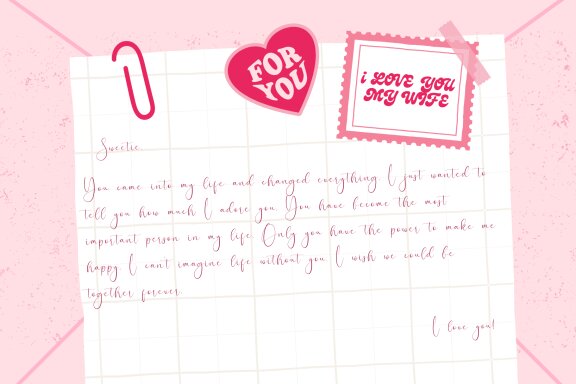 FOR
YOU
i LOVE YOU
MY WIFE
Sweetie
You came into my life and changed everything. I just wanted to
tell you how much I adore you. You have become the most
important person in my life. Only you have the power to make me
happy. I can't imagine life without you. I wish we could be
together forever.
I love you!